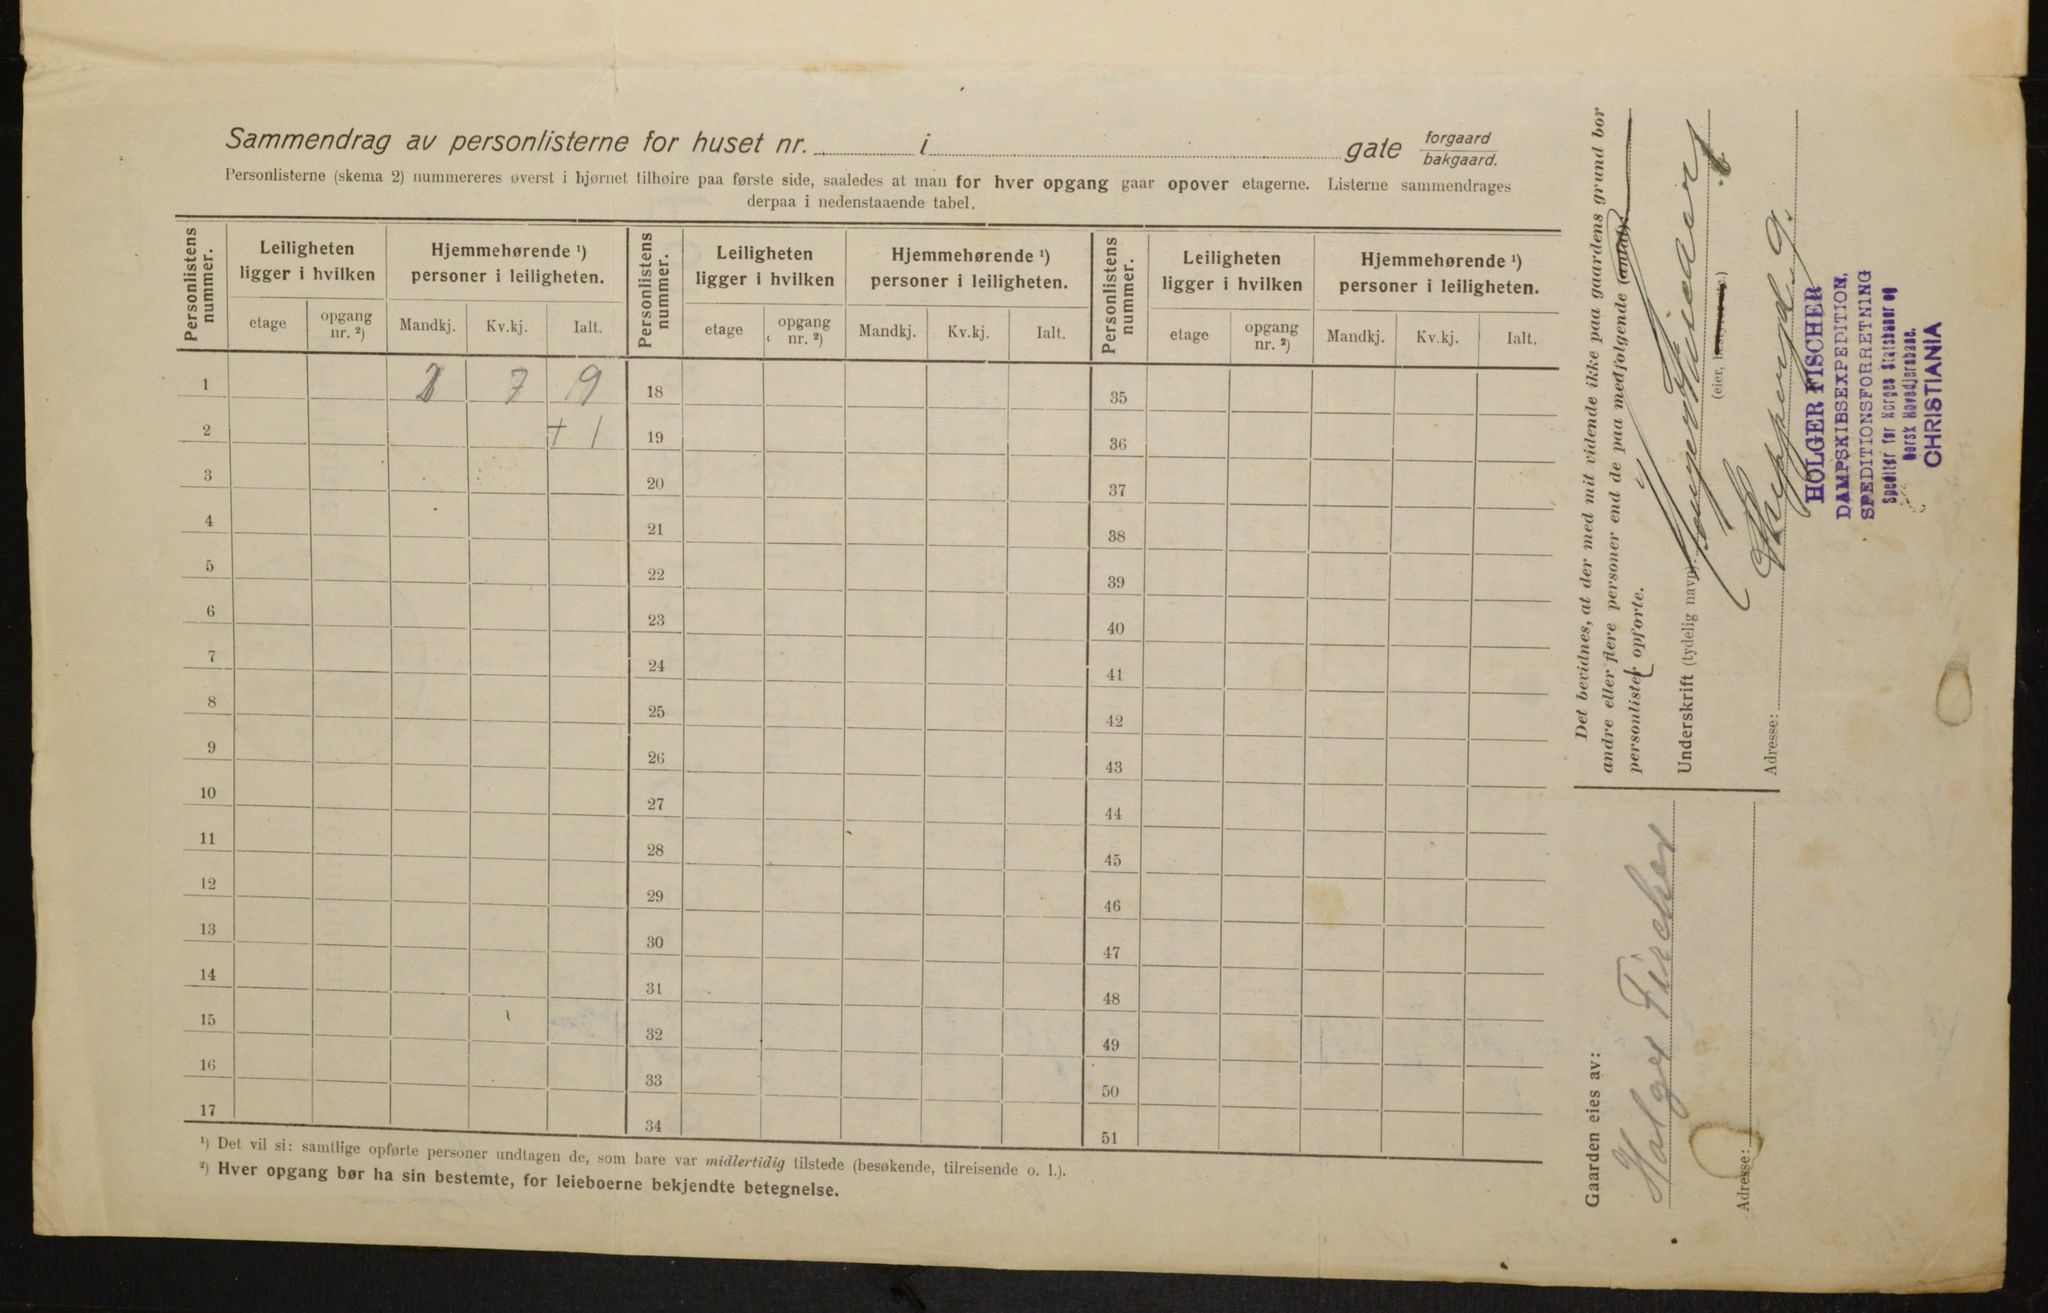 Sammendrag av personlisterne for huset nr. i gate forgaard
bakgaard.
Personlisterne (skema 2) nummereres øverst i hjørnet tilhøire paa første side, saaledes at man for hver opgang gaar opover etagerne. Listerne sammendrages
derpaa i nedenstaaende tabel.
Personlistens nummer. Leiligheten ligger i hvilken Hjemmehørende ¹) personer i leiligheten. Personlistens nummer. Leiligheten ligger i hvilken Hjemmehørende ¹) personer i leiligheten. Personlistens nummer. Leiligheten ligger i hvilken Hjemmehørende ¹) personer i leiligheten.
etage opgang nr. ²) Mandkj. Kv.kj. Ialt. etage opgang nr. ²) Mandkj. Kv.kj. Ialt. etage opgang nr. ²) Mandkj. Kv.kj. Ialt.
1 2 7 9 18 35
2 + 1 19 36
3 20 37
4 21 38
5 22 39
6 23 40
7 24 41
8 25 42
9 26 43
10 27 44
11 28 45
12 29 46
13 30 47
14 31 48
15 32 49
16 33 50
17 34 51
¹) Det vil si: samtlige opførte personer undtagen de, som bare var midlertidig tilstede (besøkende, tilreisende o. l.).
²) Hver opgang bør ha sin bestemte, for leieboerne bekjendte betegnelse.
Det bevidnes, at der med mit vidende ikke paa gaardens grund bor
andre eller flere personer end de paa medfølgende (antal)
personlister opførte.
Underskrift (tydelig navn):
(eier, bestyrer o.)
Adresse:
HOLGER FISCHER
DAMPSKIBSEXPEDITION,
SPEDITIONSFORRETNING
Speditør for Norges Statsbaner og
Norsk Hovedjernbane.
CHRISTIANIA
Gaarden eies av:
Holger Fischer
Adresse: